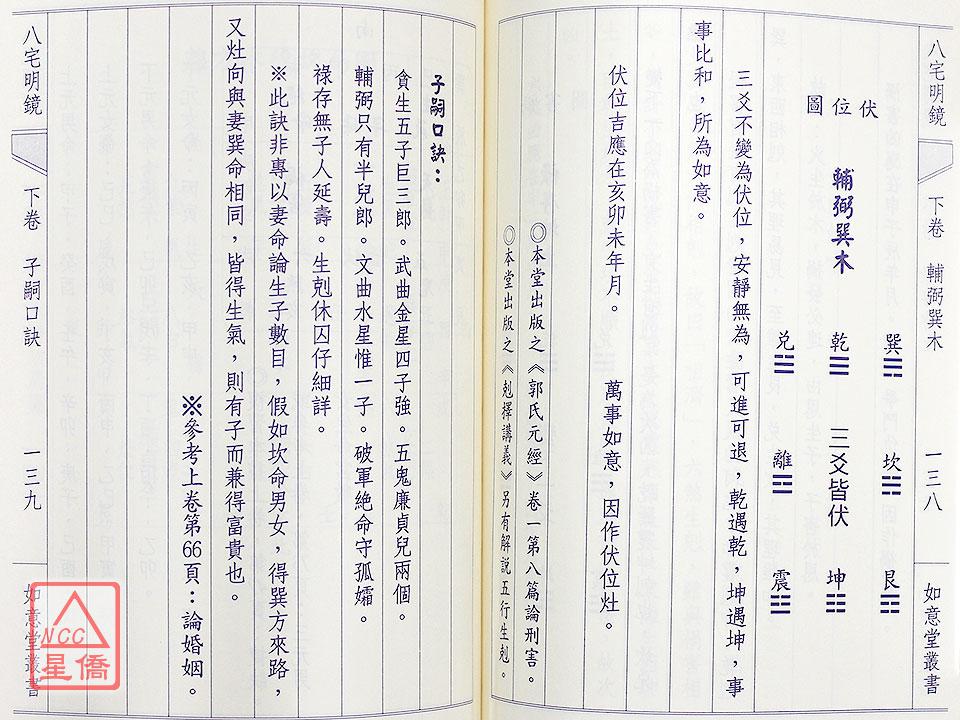 八宅明鏡
下卷 輔弼巽木
一三八
如意堂叢書
伏位圖
輔弼巽木
巽☴ 坎☵ 艮☶
乾☰ 三爻皆伏 坤☷
兑☱ 離☲ 震☳
三爻不變為伏位，安靜無為，可進可退，乾遇乾，坤遇坤，事
事比和，所為如意。
伏位吉應在亥卯未年月。 萬事如意，因作伏位灶。
◎本堂出版之《郭氏元經》卷一第八篇論刑害。
◎本堂出版之《剋擇講義》另有解說五行生剋。
子嗣口訣：
貪生五子巨三郎。武曲金星四子強。五鬼廉貞兒兩個。
輔弼只有半兒郎。文曲水星惟一子。破軍絶命守孤孀。
祿存無子人延壽。生剋休囚仔細詳。
※此訣非專以妻命論生子數目，假如坎命男女，得巽方來路，
又灶向與妻巽命相同，皆得生氣，則有子而兼得富貴也。
※參考上卷第66頁：論婚姻。
八宅明鏡
下卷 子嗣口訣
一三九
如意堂叢書
NCC
星僑